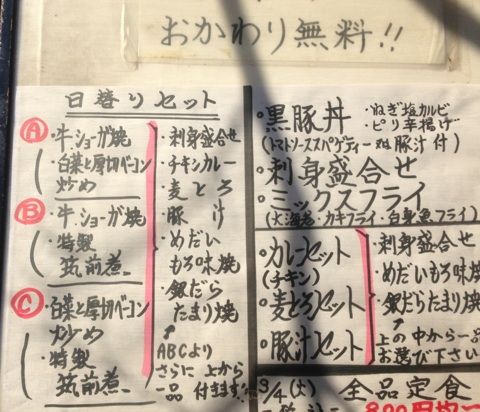 おかわり無料!!
日替りセット
Ⓐ・牛ショーガ焼
・白菜と厚切ベーコン
炒め
Ⓑ・牛ショーガ焼
・特製
筑前煮
Ⓒ・白菜と厚切ベーコン
炒め
・特製
筑前煮
・刺身盛合せ
・チキンカレー
・麦とろ
・豚汁
・めだい
もろ味焼
・銀だら
たまり焼
↑
ABCより
さらに上から
一品付きます!
・黒豚丼
・ねぎ塩カルビ
・ピリ辛揚げ
(トマトソーススパゲティー 又は 豚汁付)
・刺身盛合せ
・ミックスフライ
(大海老・カキフライ・白身魚フライ)
・カレーセット
(チキン)
・麦とろセット
・豚汁セット
・刺身盛合せ
・めだいもろ味焼
・銀だらたまり焼
↑
上の中から一品
お選び下さい
3/4(土) 全品定食
800円均一